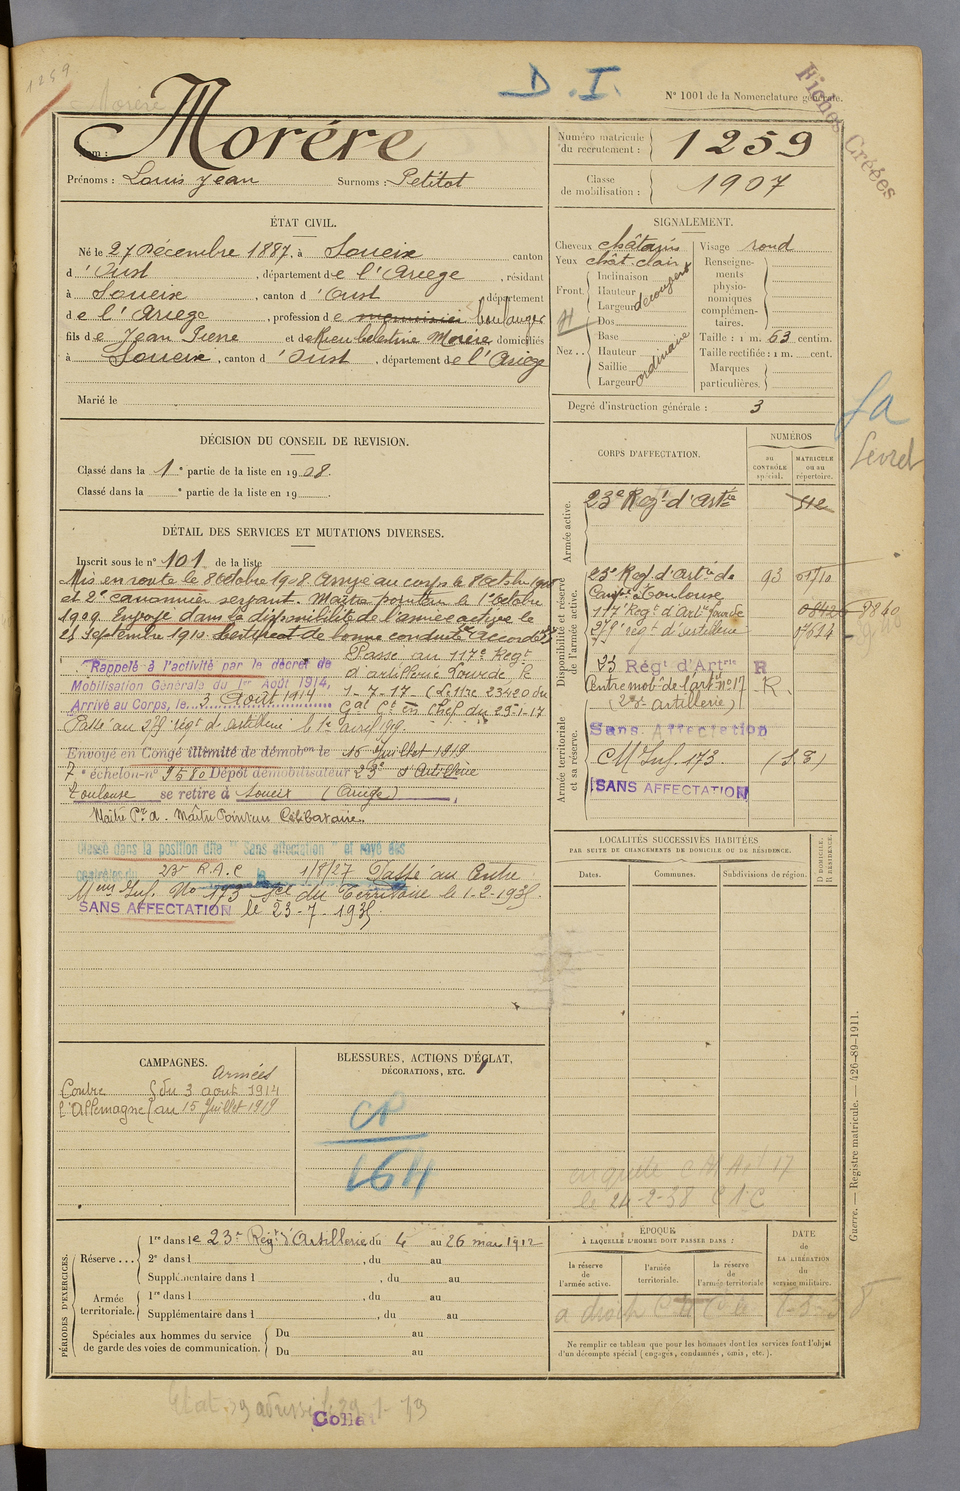 1259
Morère
D.I.
N° 1001 de la Nomenclature générale.
Fiches Créées
Nom : Morère
Prénoms : Louis Jean Surnoms : Petitot
Numéro matricule du recrutement : 1259
Classe de mobilisation : 1907
ÉTAT CIVIL.
Né le 27 Décembre 1887, à Soueix canton
d'Oust, département de l'Ariège, résidant
à Soueix, canton d'Oust, département
de l'Ariège, profession de menuisier boulanger
fils de Jean Pierre et de Celestine Morère domiciliés
à Soueix, canton d'Oust, département de l'Ariège
Marié le
SIGNALEMENT.
Cheveux châtains
Yeux chât. clair
Front.
Inclinaison
Hauteur
Largeur
découvert
Nez..
Dos
Base
Hauteur
Saillie
Largeur
ordinaire
Visage rond
Renseignements physionomiques complémentaires.
Taille : 1 m. 63 centim.
Taille rectifiée : 1 m. cent.
Marques particulières.
Degré d'instruction générale : 3
DÉCISION DU CONSEIL DE REVISION.
Classé dans la 1e partie de la liste en 1908.
Classé dans la e partie de la liste en 19
DÉTAIL DES SERVICES ET MUTATIONS DIVERSES.
Inscrit sous le n° 101 de la liste
Mis en route le 8 Octobre 1908. Arrivé au corps le 8 Octobre 1908
et 2e canonnier servant. Maître pointeur le 1er Octobre
1909. Envoyé dans la disponibilité de l'armée active le
25 Septembre 1910. Certificat de bonne conduite Accordé
Rappelé à l'activité par le décret de
Mobilisation Générale du 1er Août 1914,
Arrivé au Corps, le 3 Août 1914
Passé au 117e Régt
d'artillerie Lourde, le
1-7-17 (Lettre 23420 du
Gal Ct en Chef du 29-1-17
Passé au régt d'artillerie le 1er avril 1919.
Envoyé en Congé illimité de démobon le 15 Juillet 1919
7e échelon n° 9580 Dépôt démobilisateur 23e d'Artillerie
Toulouse se retire à Soueix (Ariège)
Maître Pointeur Célibataire.
Classé dans la position dite "Sans affectation" et rayé des
contrôles du 23e R.A.C le 1/8/27 Passé au Centre
Mum Inf. No 173 du Territoire le 1-2-1935.
SANS AFFECTATION le 23-7-1935.
CORPS D'AFFECTATION.
NUMÉROS
au CONTRÔLE spécial.
MATRICULE ou au répertoire.
Armée active.
23e Régt d'Artie
512
Disponibilité et réserve de l'armée active.
23e Rég. d'Artie de
Campe Toulouse
93
01910
117e Régt d'Artie Lourde
9840
régt d'artillerie
07614
23 Régt d'Artrie R
Centre mobe de l'arte n° 17 R.
(23e artillerie)
Armée territoriale et sa réserve.
Sans Affectation
C Mum Inf. 173. (S.E)
SANS AFFECTATION
LOCALITÉS SUCCESSIVES HABITÉES
PAR SUITE DE CHANGEMENTS DE DOMICILE OU DE RÉSIDENCE.
Dates.
Communes.
Subdivisions de région.
D DOMICILE. R RÉSIDENCE.
CAMPAGNES.
Armées
Contre l'Allemagne
du 3 août 1914
au 15 Juillet 1919
BLESSURES, ACTIONS D'ÉCLAT,
DÉCORATIONS, ETC.
CP
164
le 24-2-38
PÉRIODES D'EXERCICES.
Réserve...
1re dans le 23e Régt d'Artillerie du 4 au 26 mai 1912
2e dans l , du au
Supplémentaire dans l , du au
Armée territoriale.
1re dans l , du au
Supplémentaire dans l , du au
Spéciales aux hommes du service de garde des voies de communication.
Du au
Du au
ÉPOQUE
À LAQUELLE L'HOMME DOIT PASSER DANS :
la réserve de l'armée active.
l'armée territoriale.
la réserve de l'armée territoriale
DATE DE LA LIBÉRATION du service militaire.
Ne remplir ce tableau que pour les hommes dont les services font l'objet
d'un décompte spécial (engagés, condamnés, omis, etc.).
Guerre. — Registre matricule. — 426-89-1911.